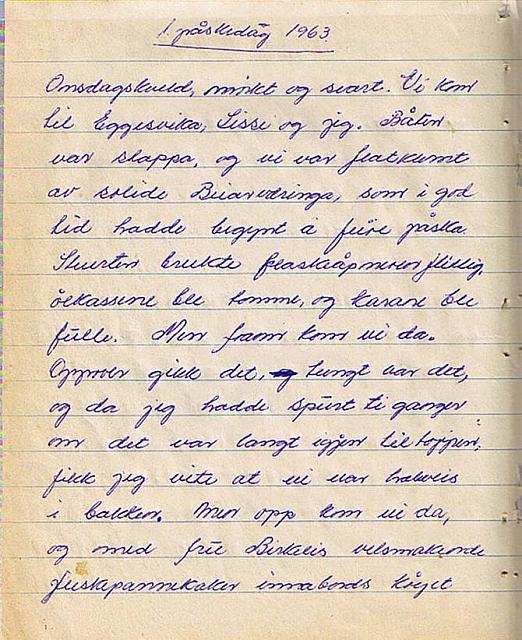 1. påskedag 1963
Onsdagskveld, mørkt og svart. Vi kom
til Eggesvika, Sissi og jeg. Båten
var slappa, og vi var
av solide Beiarværinga, som i god
tid hadde begynt å feire påska.
Skuten brukte flaskeåpneren flittig,
ølkassene ble tomme, og karane ble
fulle. Men fram kom vi da.
Oppover gikk det, tungt var det,
og da jeg hadde spurt ti ganger
om det var langt igjen til toppen,
fikk jeg vite at vi var halveis
i bakken. Men opp kom vi da,
og med fru Birkelis velsmakende
fleskepannekaker innabords krøjet